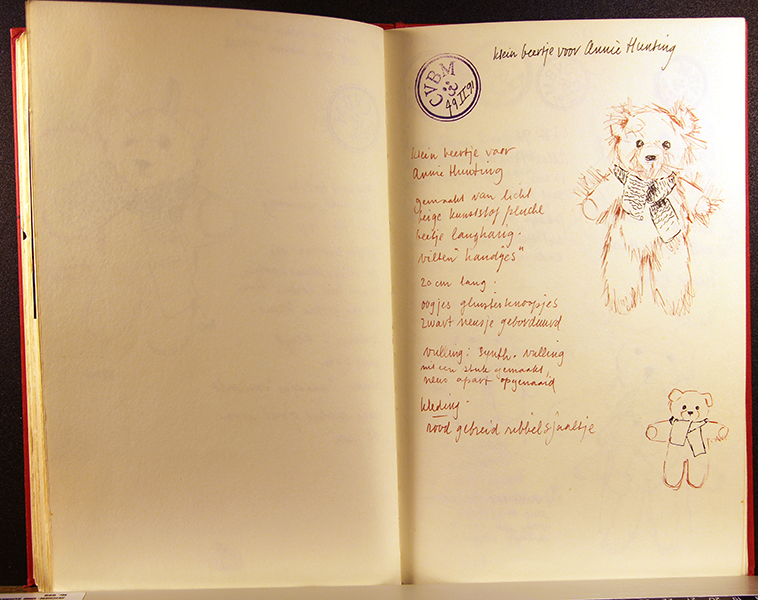 klein beertje voor Annie Hunting
CVBM
49 II 91
klein beertje voor
Annie Hunting
gemaakt van licht
beige kunststof pluche
beetje langharig.
vilten "handjes"
20 cm lang.
oogjes glinsterknoopjes
zwart neusje geborduurd
vulling: synth. vulling
uit een stuk gemaakt,
neus apart opgenaaid
kleding.
rood gebreid ribbelsjaaltje